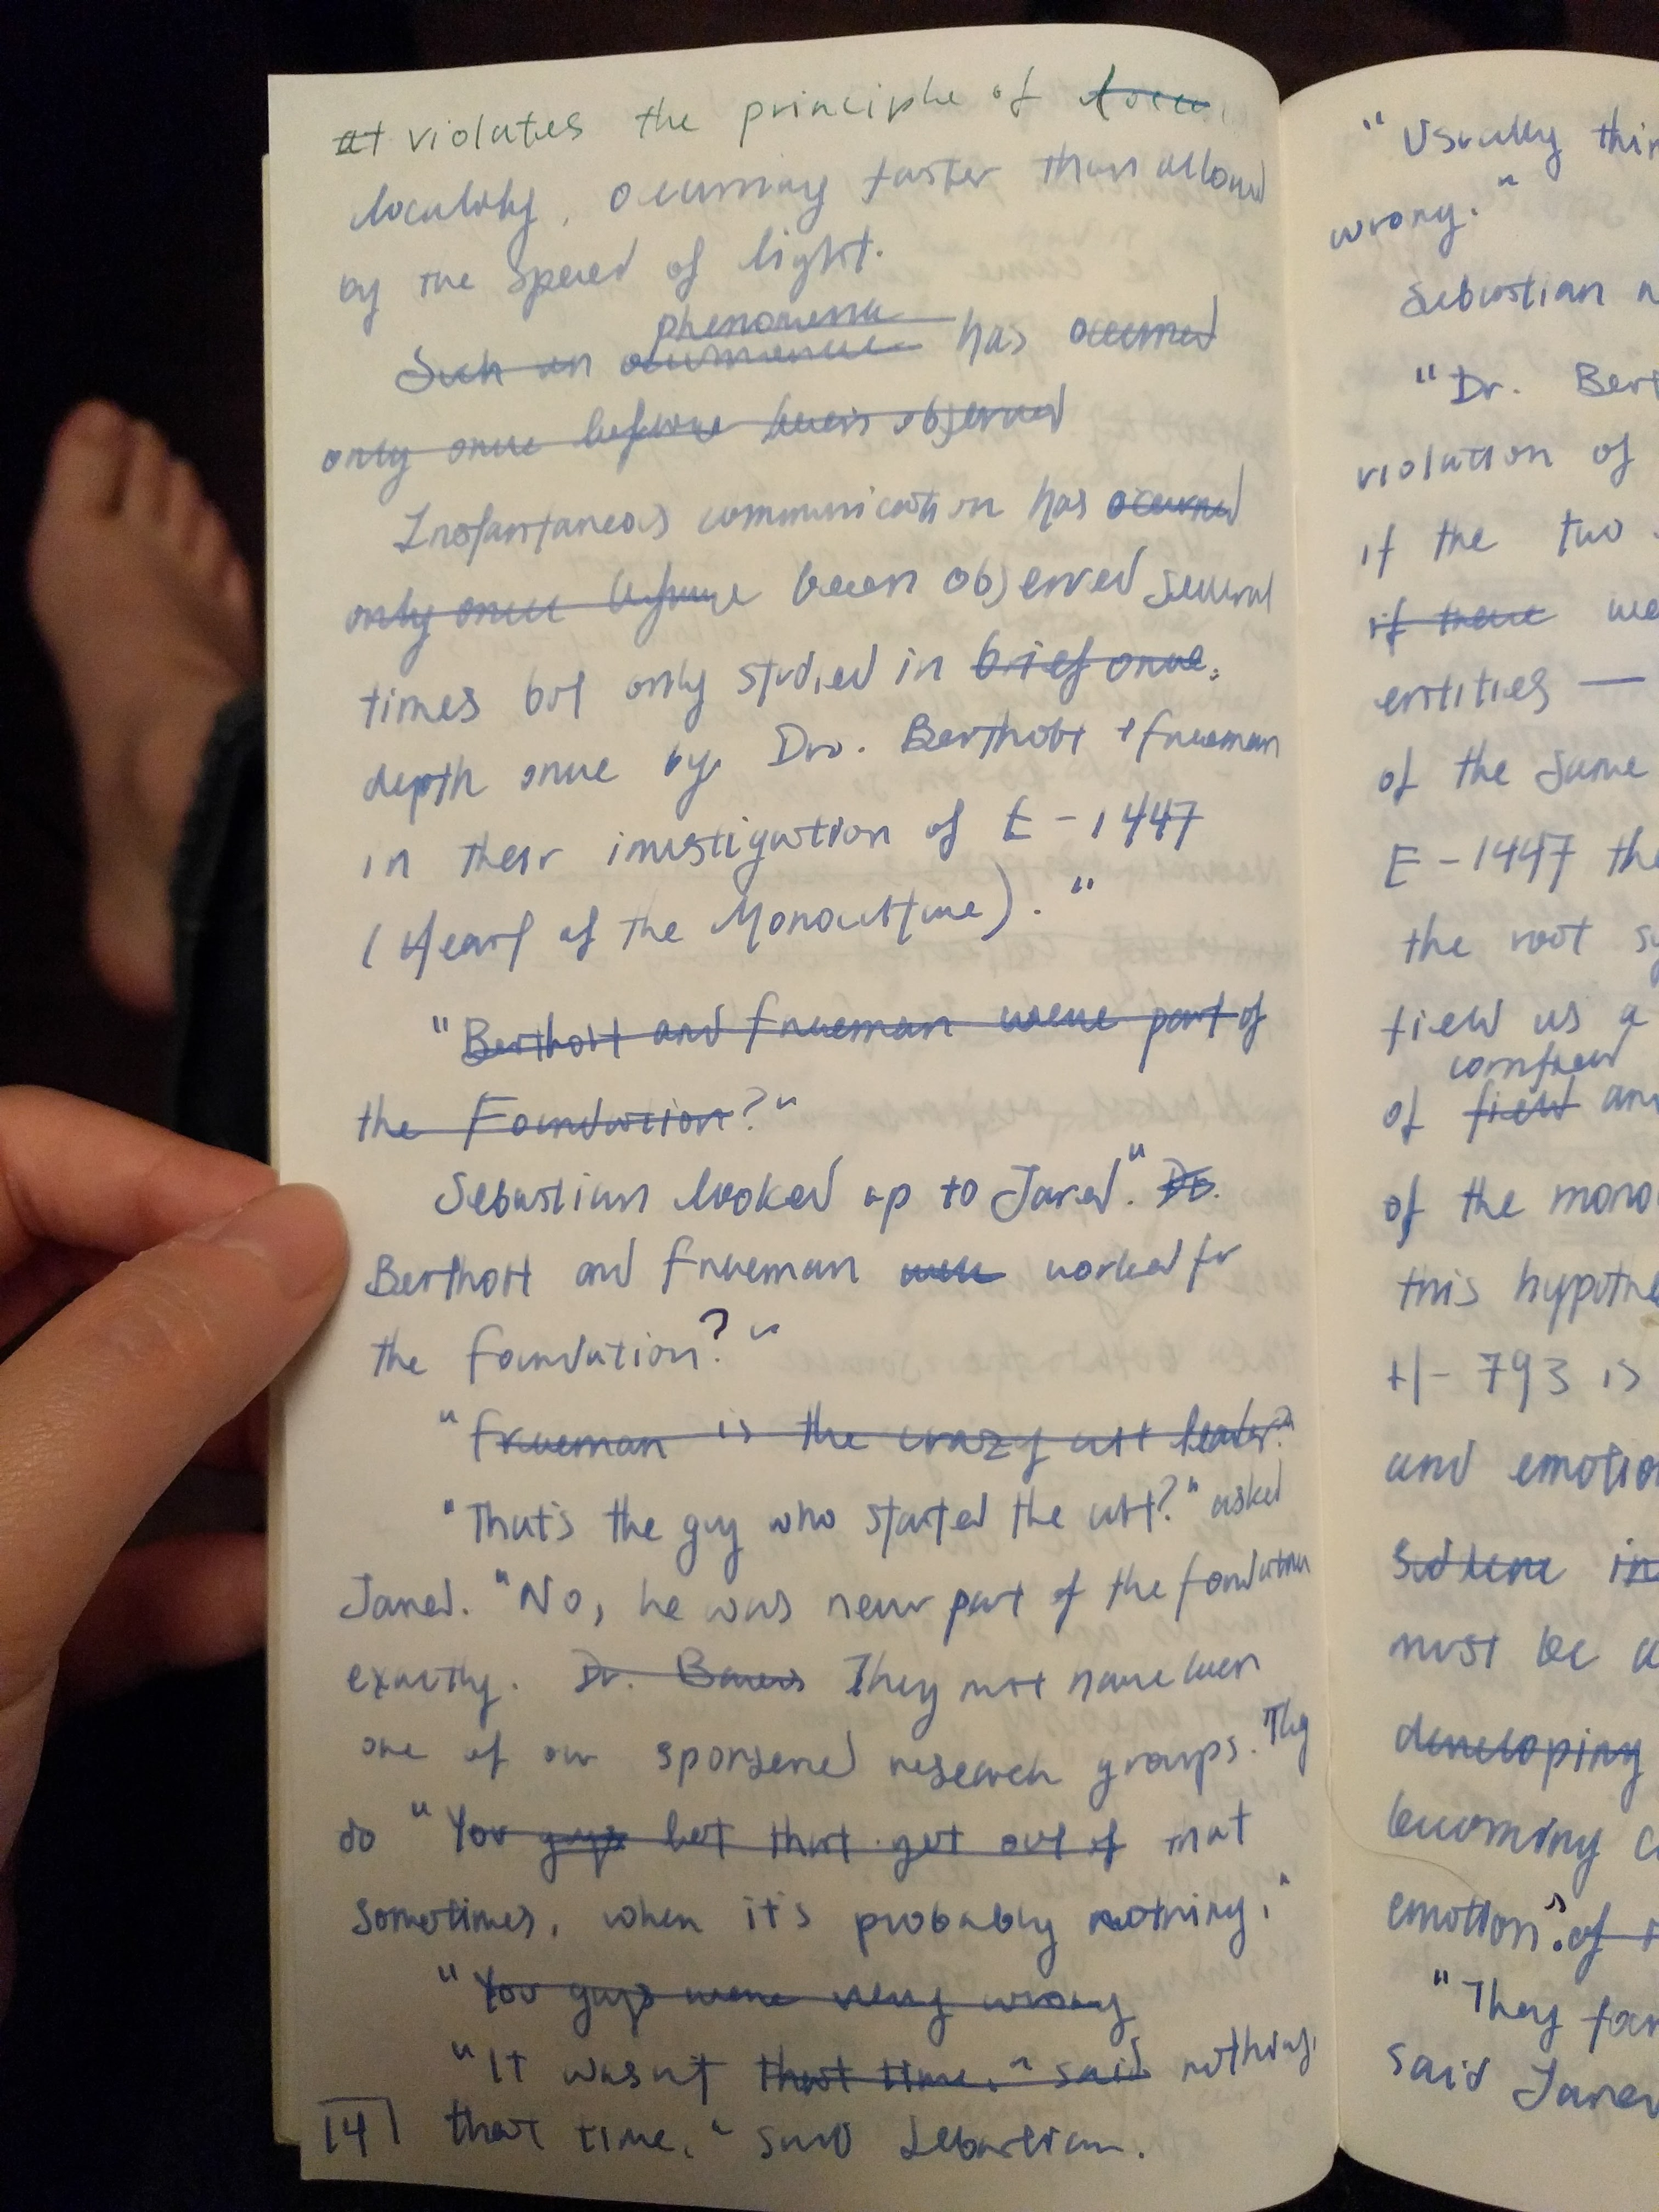 it violates the principle of
locality, occurring faster than allowed
by the speed of light.
phenomena
Such an occurrence has occurred
only once before been observed
Instantaneous communication has occurred
only once before been observed several
times but only studied in brief once.
depth once by Drs. Berthott + Freeman
in their investigation of E-1447
(Heart of the Monoculture)."
"Berthott and Freeman were part of
the Foundation?"
Sebastian looked up to Jared." Dr.
Berthott and Freeman were worked for
the Foundation?"
"Freeman is the crazy cult leader?"
"That's the guy who started the cult?" asked
Jared. "No, he was never part of the foundation
exactly. Dr. They not have been
one of our sponsered research groups. They
do "You guys let that get out of that
sometimes, when it's probably nothing."
"You guys were very wrong
"It wasn't that time." said nothing
14 that time." said Sebastian.
"Usually
wrong."
Sebastian
"Dr.
violation of
if the two
if there
entities —
of the same
E-1447
the root
field as a
of field
of the
this
+/- 793 is
and
must be
developing
becoming
emotion." of
"They
said Jared